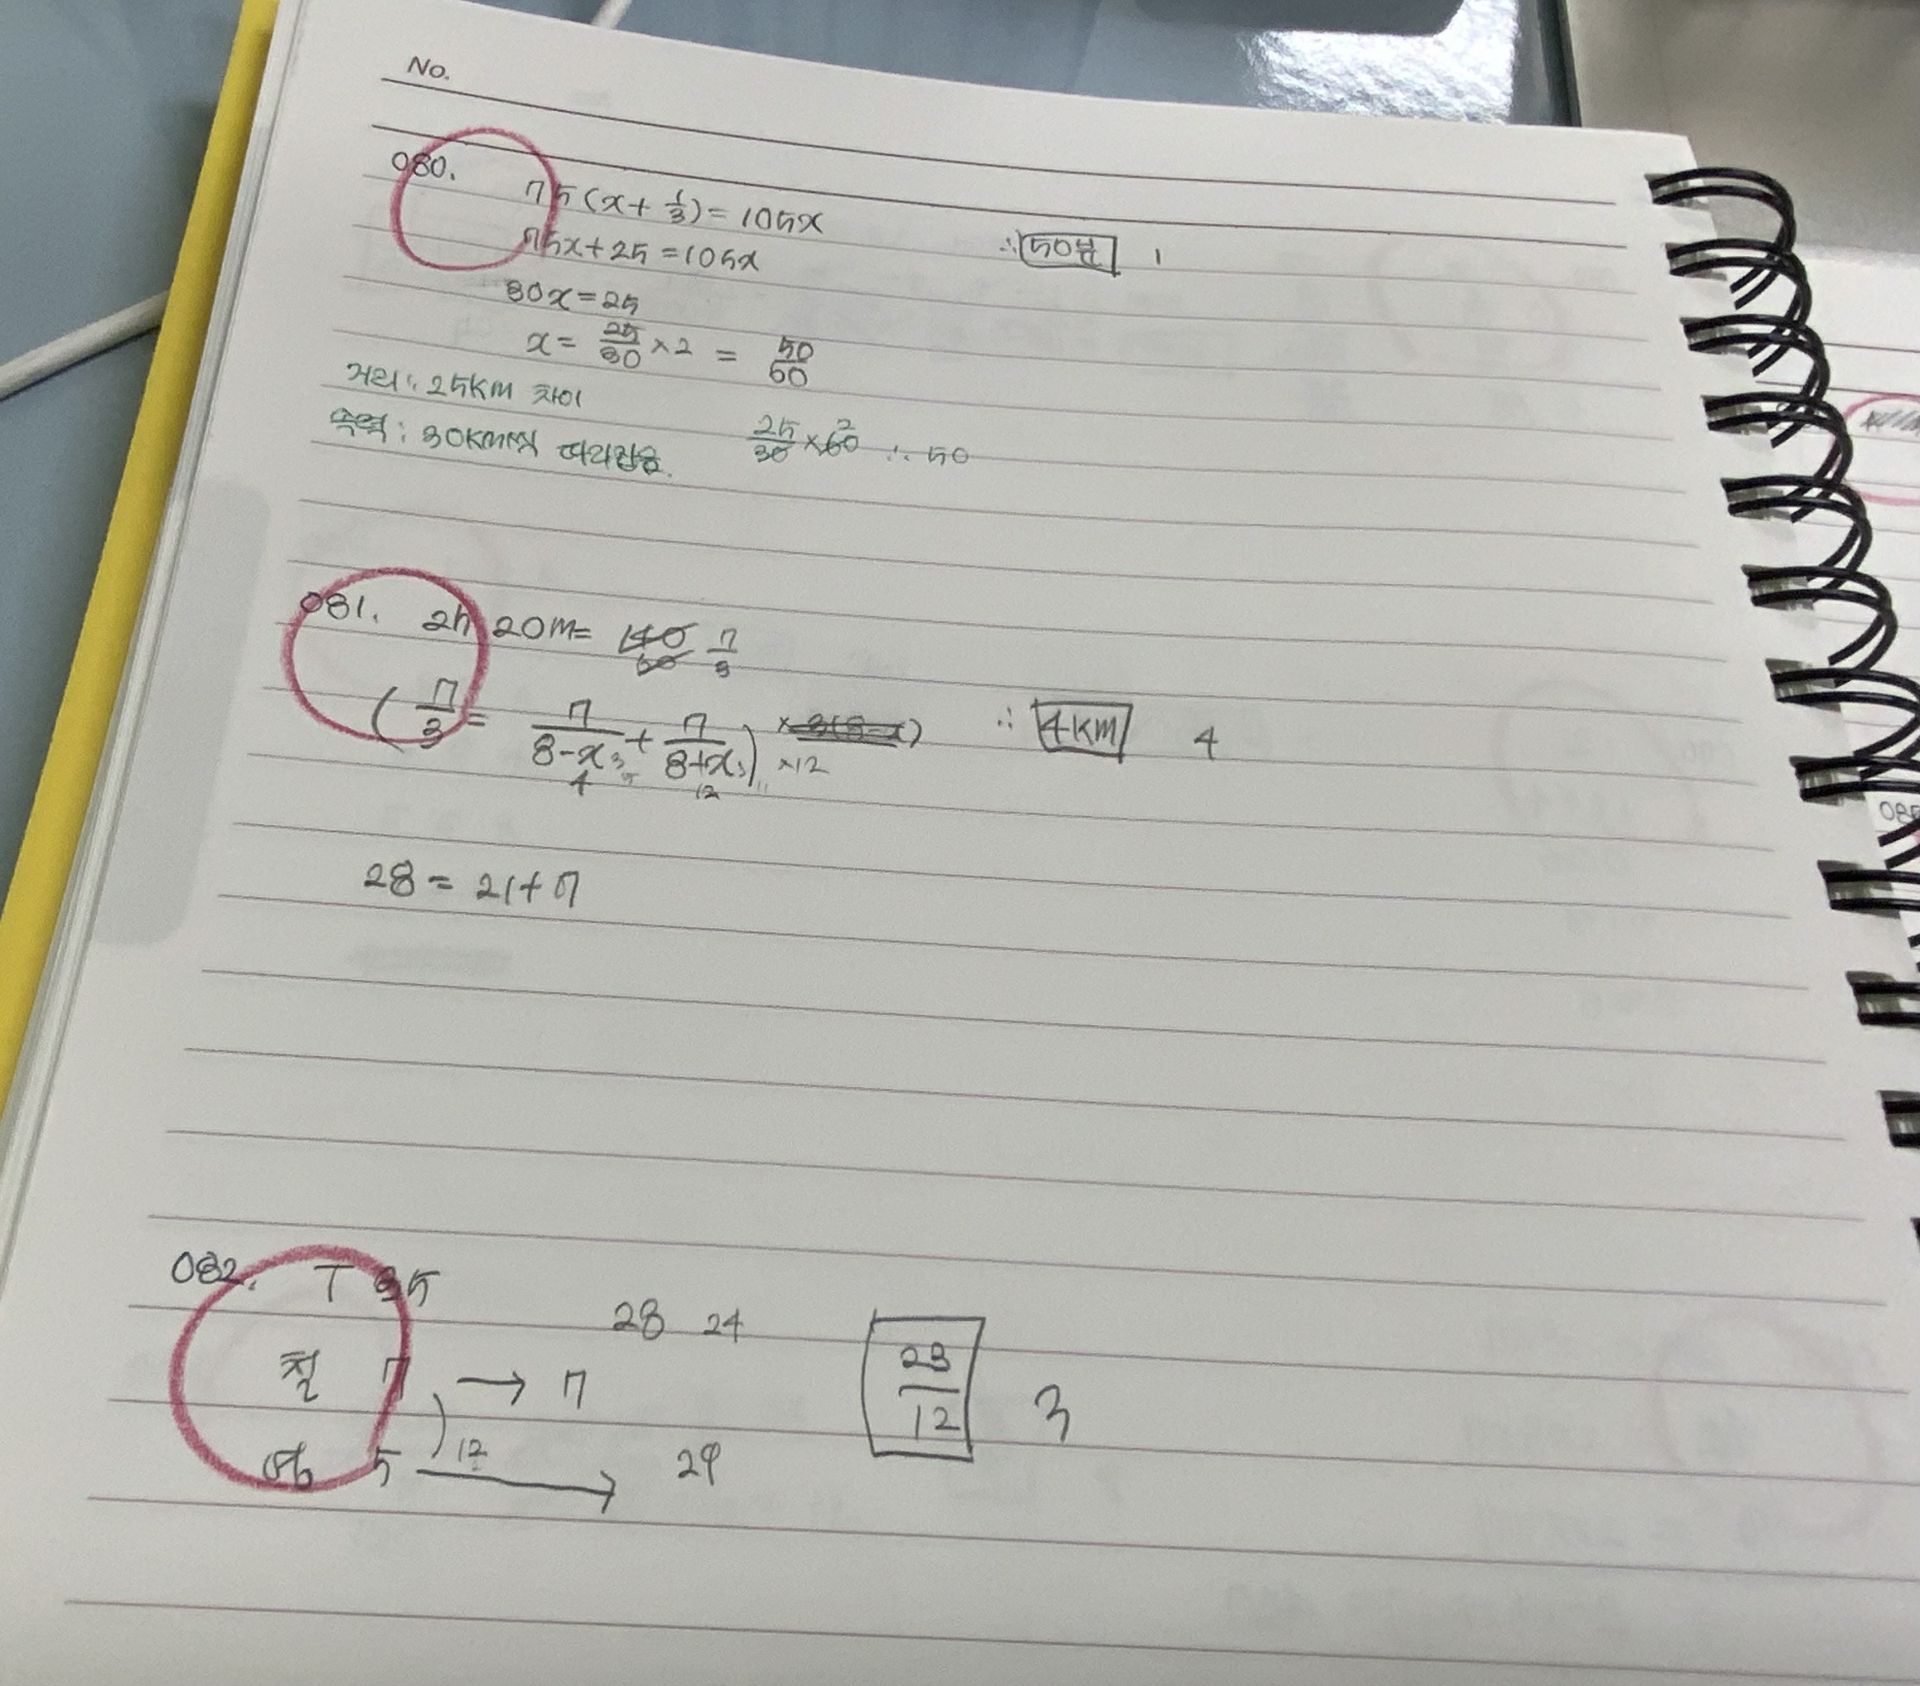 No.
080.
75(x+1/3)=105x
75x+25=105x
∴ 50분 1
30x=25
x=25/30×2=50/60
거리: 25km 차이
속력: 30km씩 따라잡음.
25/30×60 2 ∴ 50
081. 2h 20m= 140/60 7/3
(7/3=7/8-x+7/8+x) ×3(8-x) ∴ 4km 4
×12
4 12
28=21+7
082. T 35
28 24
칠 7 → 7
23/12 3
5 → 29
12
085